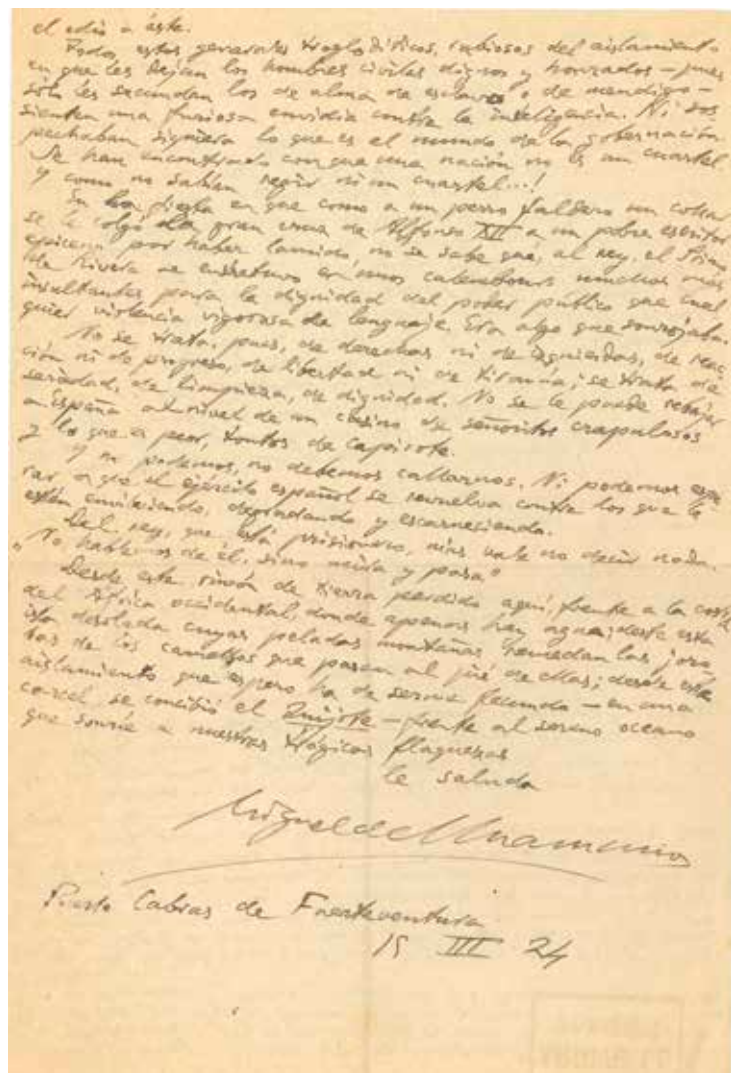 el odio a éste.
Todos estos generales trogloditicos, rabiosos del aislamiento
en que les dejan los hombres civiles dignos y honrados - pues
sólo les secundan los de alma de esclavo o de mendigo -
sienten una furiosa envidia contra la inteligencia. Ni sos
pechaban siquiera lo que es el mundo de la gobernación.
Se han encontrado con que una nación no es un cuartel
y como no sabían regir ni un cuartel...!
En la fiesta en que como a un perro faldero un collar
se le colgó la gran cruz de Alfonso XII a un pobre escritor
epiceno por haber lamido, no se sabe qué, al rey, el Primo
de Rivera se entretuvo en unos calembours muchos más
insultantes para la dignidad del poder público que cual
quier violencia vigorosa de lenguaje. Era algo que sonrojaba.
No se trata, pues, de derechas ni de izquierdas, de reac
ción ni de progreso, de libertad ni de tiranía; se trata de
seriedad, de limpieza, de dignidad. No se le puede rebajar
a España al nivel de un casino de señoritos crapulosos
y lo que es peor, tontos de capirote.
Y no podemos, no debemos callarnos. Ni podemos espe
rar a que el ejército español se revuelva contra los que le
están envileciendo, degradando y escarneciendo.
Del rey, que está prisionero, más vale no decir nada.
"No hablemos de él, sino mira y pasa"
Desde este rincón de tierra perdido aquí, frente a la costa
del África occidental, donde apenas hay agua; desde esta
isla desolada cuyas peladas montañas remedan las joro
bas de los camellos que pasan al pié de ellas; desde este
aislamiento que espero ha de serme fecundo - en una
carcel se concibió el Quijote - frente al sereno oceano
que sonríe a nuestras trágicas flaquezas
le saluda
Miguel de Unamuno
Puerto Cabras de Fuerteventura
15 III 24